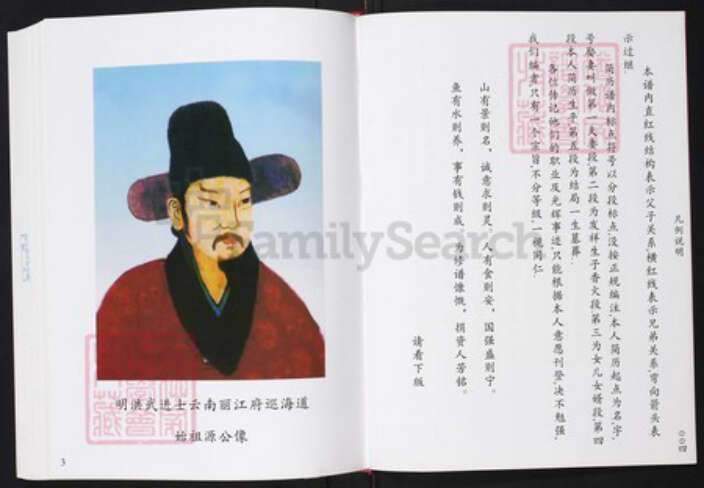 明洪武进士云南丽江府巡海道
始祖源公像
3
凡例说明
本谱内直红线结构表示父子关系横红线表示兄弟关系,弯向箭头表
示过继.
简历谱内标点符号以分段标点,没按正规编注,本人简历起点为名,字,
号娶妻叫做第一夫妻段,第二段为发祥生子香火段,第三为女儿女婿段,第四
段本人简历生平,第五段为结局一生墓葬.
各位传记他们的职业及光辉事迹,只能根据本人意愿刊登,决不勉强,
我们编者只有一个宗旨,不分等级,一视同仁.
山有景则名, 诚意求则灵, 人有食则安, 国强盛则宁。
鱼有水则养, 事有钱则成, 为修谱慷慨, 捐资人芳铭。
请看下版
00四
FamilySearch